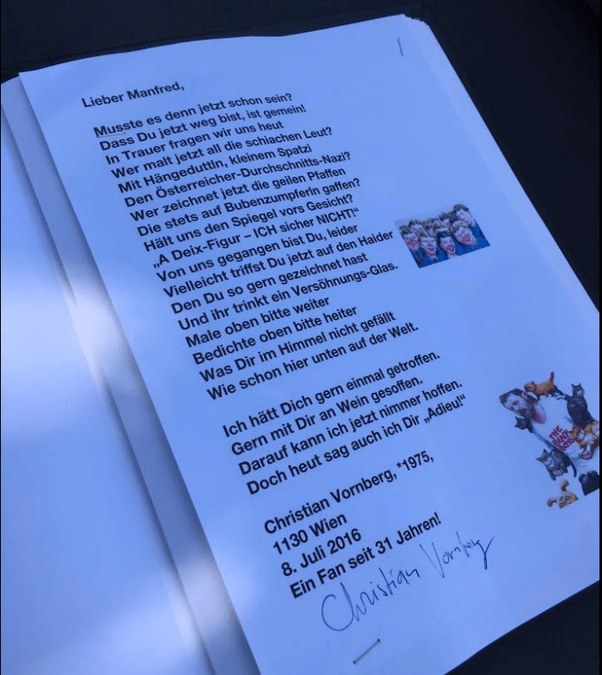 Lieber Manfred,
Musste es denn jetzt schon sein?
Dass Du jetzt weg bist, ist gemein!
In Trauer fragen wir uns heut
Wer malt jetzt all die schiachen Leut?
Mit Hängeduttln, kleinem Spatzi
Den Österreicher-Durchschnitts-Nazi?
Wer zeichnet jetzt die geilen Pfaffen
Die stets auf Bubenzumpferln gaffen?
Hält uns den Spiegel vors Gesicht?
„A Deix-Figur – ICH sicher NICHT!“
Von uns gegangen bist Du, leider
Vielleicht triffst Du jetzt auf den Haider
Den Du so gern gezeichnet hast
Und ihr trinkt ein Versöhnungs-Glas.
Male oben bitte weiter
Bedichte oben bitte heiter
Was Dir im Himmel nicht gefällt
Wie schon hier unten auf der Welt.
Ich hätt Dich gern einmal getroffen.
Gern mit Dir an Wein gesoffen.
Darauf kann ich jetzt nimmer hoffen.
Doch heut sag auch ich Dir „Adieu!“
Christian Vornberg, *1975,
1130 Wien
8. Juli 2016
Ein Fan seit 31 Jahren!
Christian Vornberg